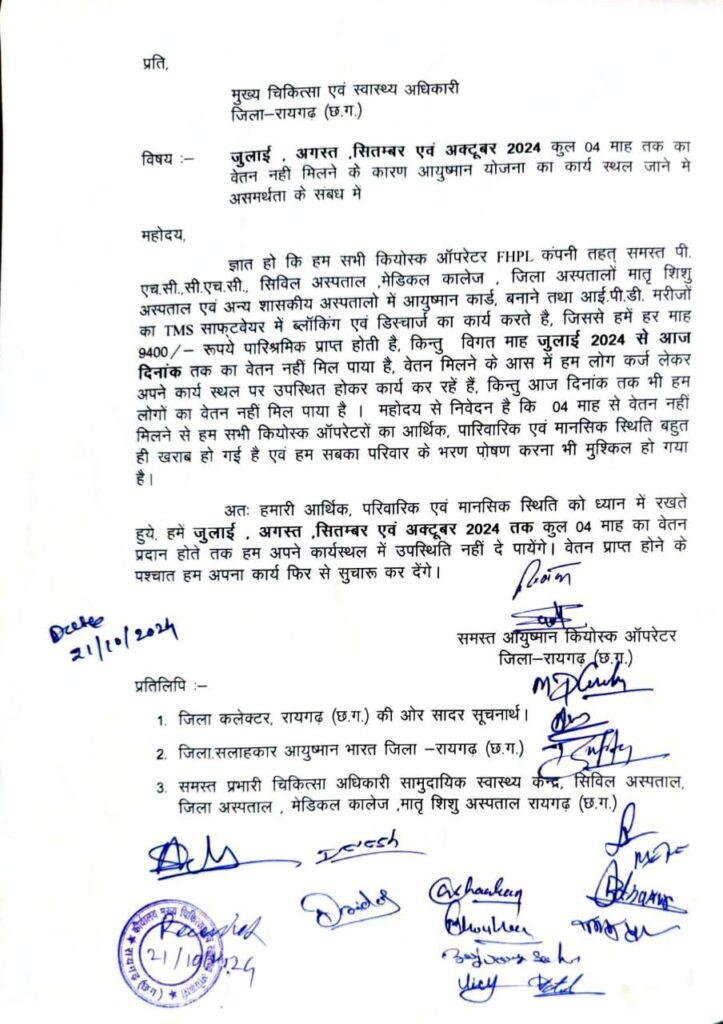 प्रति,
मुख्य चिकित्सा एवं स्वास्थ्य अधिकारी
जिला–रायगढ़ (छ.ग.)
विषय :– जुलाई , अगस्त ,सितम्बर एवं अक्टूबर 2024 कुल 04 माह तक का
वेतन नहीं मिलने के कारण आयुष्मान योजना का कार्य स्थल जाने मे
असमर्थता के संबध में
महोदय,
ज्ञात हो कि हम सभी कियोस्क ऑपरेटर FHPL कंपनी तहत् समस्त पी.
एच.सी.,सी.एच.सी., सिविल अस्पताल ,मेडिकल कालेज , जिला अस्पतालों मातृ शिशु
अस्पताल एवं अन्य शासकीय अस्पतालो में आयुष्मान कार्ड, बनाने तथा आई.पी.डी. मरीजों
का TMS साफ्टवेयर में ब्लॉकिंग एवं डिस्चार्ज का कार्य करते है, जिससे हमें हर माह
9400/– रूपये पारिश्रमिक प्राप्त होती है, किन्तु विगत माह जुलाई 2024 से आज
दिनांक तक का वेतन नहीं मिल पाया है, वेतन मिलने के आस में हम लोग कर्ज लेकर
अपने कार्य स्थल पर उपस्थित होकर कार्य कर रहें हैं, किन्तु आज दिनांक तक भी हम
लोगों का वेतन नहीं मिल पाया है । महोदय से निवेदन है कि 04 माह से वेतन नहीं
मिलने से हम सभी कियोस्क ऑपरेटरों का आर्थिक, पारिवारिक एवं मानसिक स्थिति बहुत
ही खराब हो गई है एवं हम सबका परिवार के भरण पो़षण करना भी मुश्किल हो गया
है।
अतः हमारी आर्थिक, परिवारिक एवं मानसिक स्थिति को ध्यान में रखते
हुये. हमें जुलाई , अगस्त ,सितम्बर एवं अक्टूबर 2024 तक कुल 04 माह का वेतन
प्रदान होते तक हम अपने कार्यस्थल में उपस्थिति नहीं दे पायेंगे। वेतन प्राप्त होने के
पश्चात हम अपना कार्य फिर से सुचारू कर देंगे।
Date
21/10/2024
समस्त आयुष्मान कियोस्क ऑपरेटर
जिला–रायगढ़ (छ.ग.)
प्रतिलिपि :–
1. जिला कलेक्टर, रायगढ़ (छ.ग.) की ओर सादर सूचनार्थ।
2. जिला.सलाहकार आयुष्मान भारत जिला –रायगढ़ (छ.ग.)
3. समस्त प्रभारी चिकित्सा अधिकारी सामुदायिक स्वास्थ्य केन्द्र, सिविल अस्पताल,
जिला अस्पताल , मेडिकल कालेज ,मातृ शिशु अस्पताल रायगढ़ (छ.ग.)
21/10/24